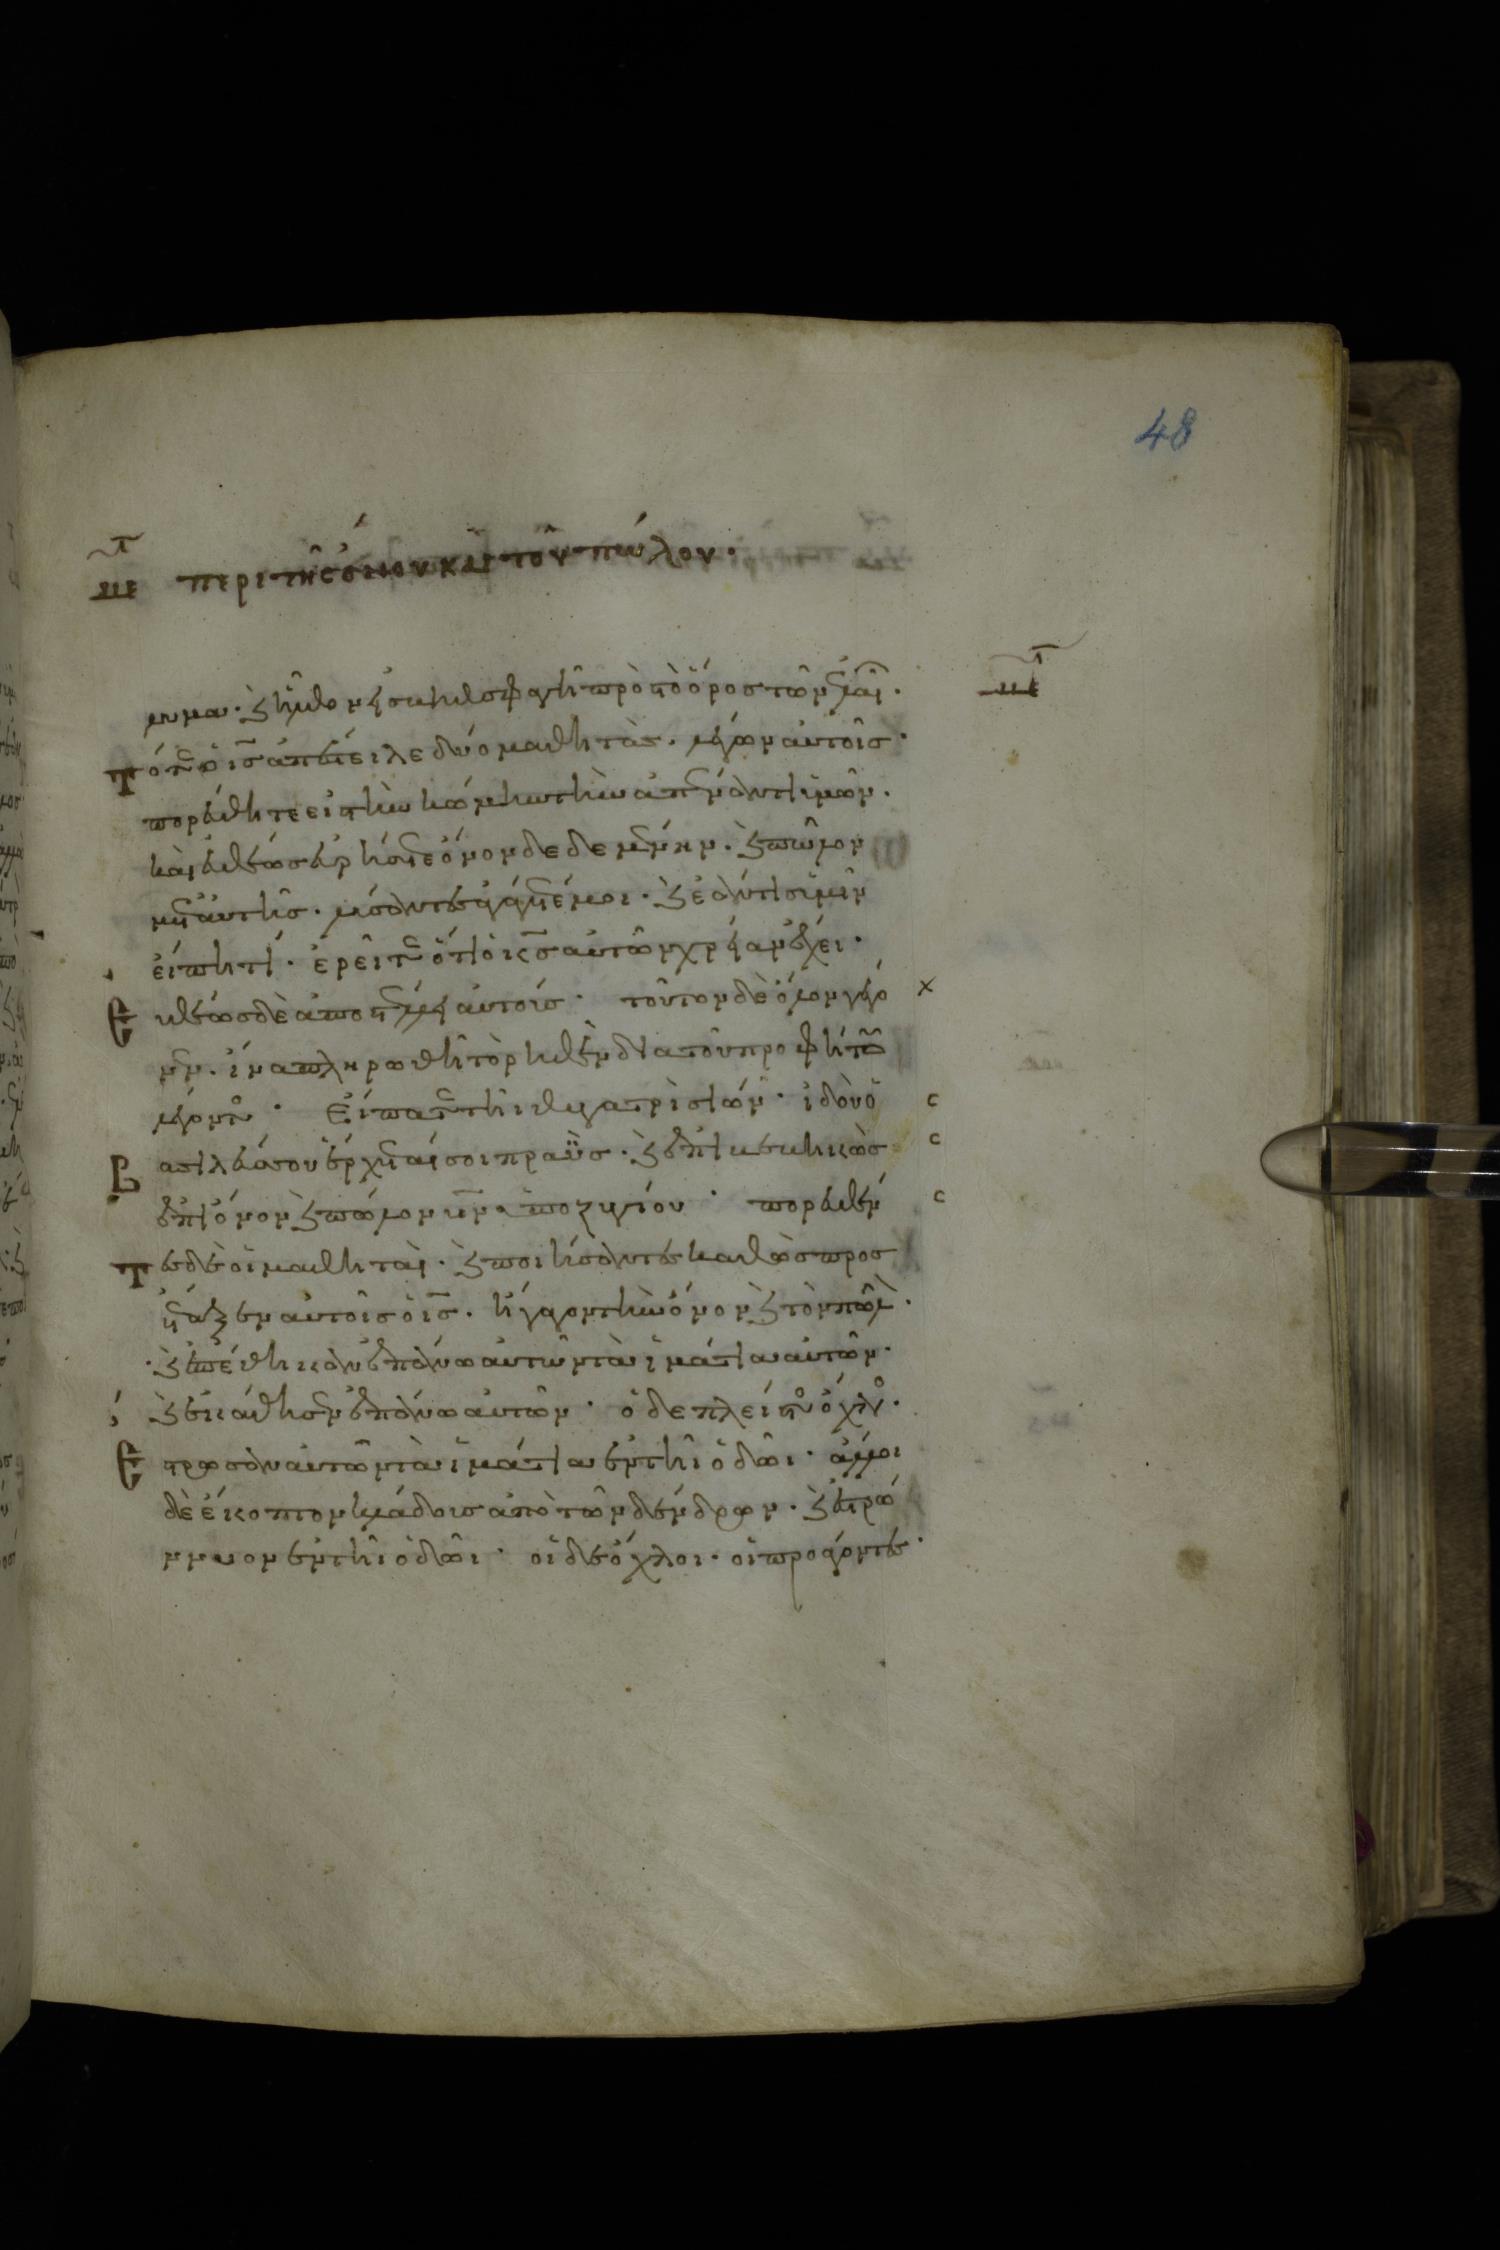 48
με περι τῆς ὄνου και τοῦ πώλου·
λυμα· καὶ ἦλθον εἰς βηθσφαγὴ πρὸς τὸ ὄρος τῶν ἐλαιῶν·
με
Τότε ὁ ις ἀπέστειλε δύο μαθητὰς· λέγων αὐτοῖς·
πορεύθητε εἰς τὴν κώμην τὴν ἀπέναντι ὑμῶν·
καὶ εὐθέως εὑρήσετε ὄνον δεδεμένην· καὶ πῶλον
μετ αὐτῆς· λύσαντες ἀγάγετέ μοι· καὶ ἐάν τις ὑμῖν
εἴπη τί· ἐρεῖτε ὅτι ὁ κς αὐτῶν χρείαν ἔχει·
Εὐθέως δὲ ἀποστέλλει αὐτούς· τοῦτο δὲ ὅλον γέγο
νεν· ἵνα πληρωθῆ τὸ ρηθὲν δια τοῦ προφήτου
λέγοντος· Εἴπατε τῆι θυγατρὶ σιών· ἰδοὺ ὁ
Βασιλεύς σου ἔρχεταί σοι πραΰς· καὶ ἐπιβεβηκὼς
ἐπὶ ὄνον καὶ πῶλον υἱὸν ὑποζυγίου· πορευθέν
Τες δὲ οἱ μαθηταὶ· καὶ ποιήσαντες καθὼς προσ
έταξεν αὐτοῖς ὁ ις· ἤγαγον τὴν ὄνον καὶ τὸν πῶλον·
καὶ ἐπέθηκαν ἐπάνω αὐτῶν τὰ ἱμάτια αὐτῶν·
καὶ ἐκάθησεν ἐπάνω αὐτῶν· ὁ δὲ πλεῖστος ὄχλος·
Ἔστρωσαν αὐτῶν τὰ ἱμάτια ἐν τῆι ὁδῶι· ἄλλοι
δὲ ἔκοπτον κλάδους ἀπὸ τῶν δένδρων· καὶ ἐστρώ
ννυον ἐν τῆι ὁδῶι· οἱ δὲ ὄχλοι· οἱ προάγοντες·